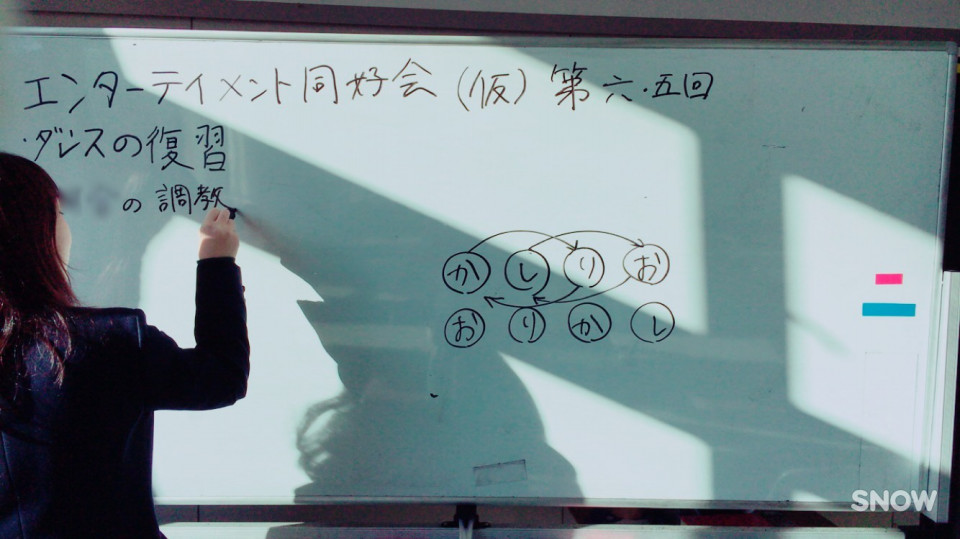 エンターテイメント同好会(仮)第六.五回
・ダンスの復習
の調教
か し り お
お り か し
SNOW